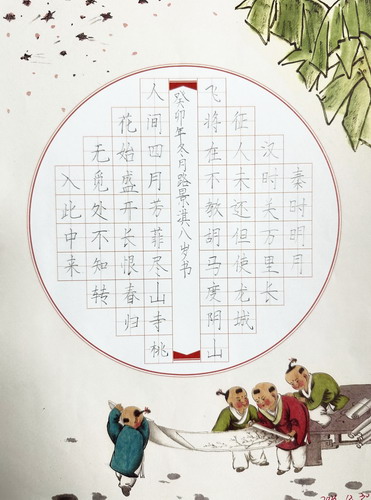 秦时明月
汉时关万里长
征人未还但使龙城
飞将在不教胡马度阴山
癸卯年冬月路景淇八岁书
人间四月芳菲尽山寺桃
花始盛开长恨春归
无觅处不知转
入此中来